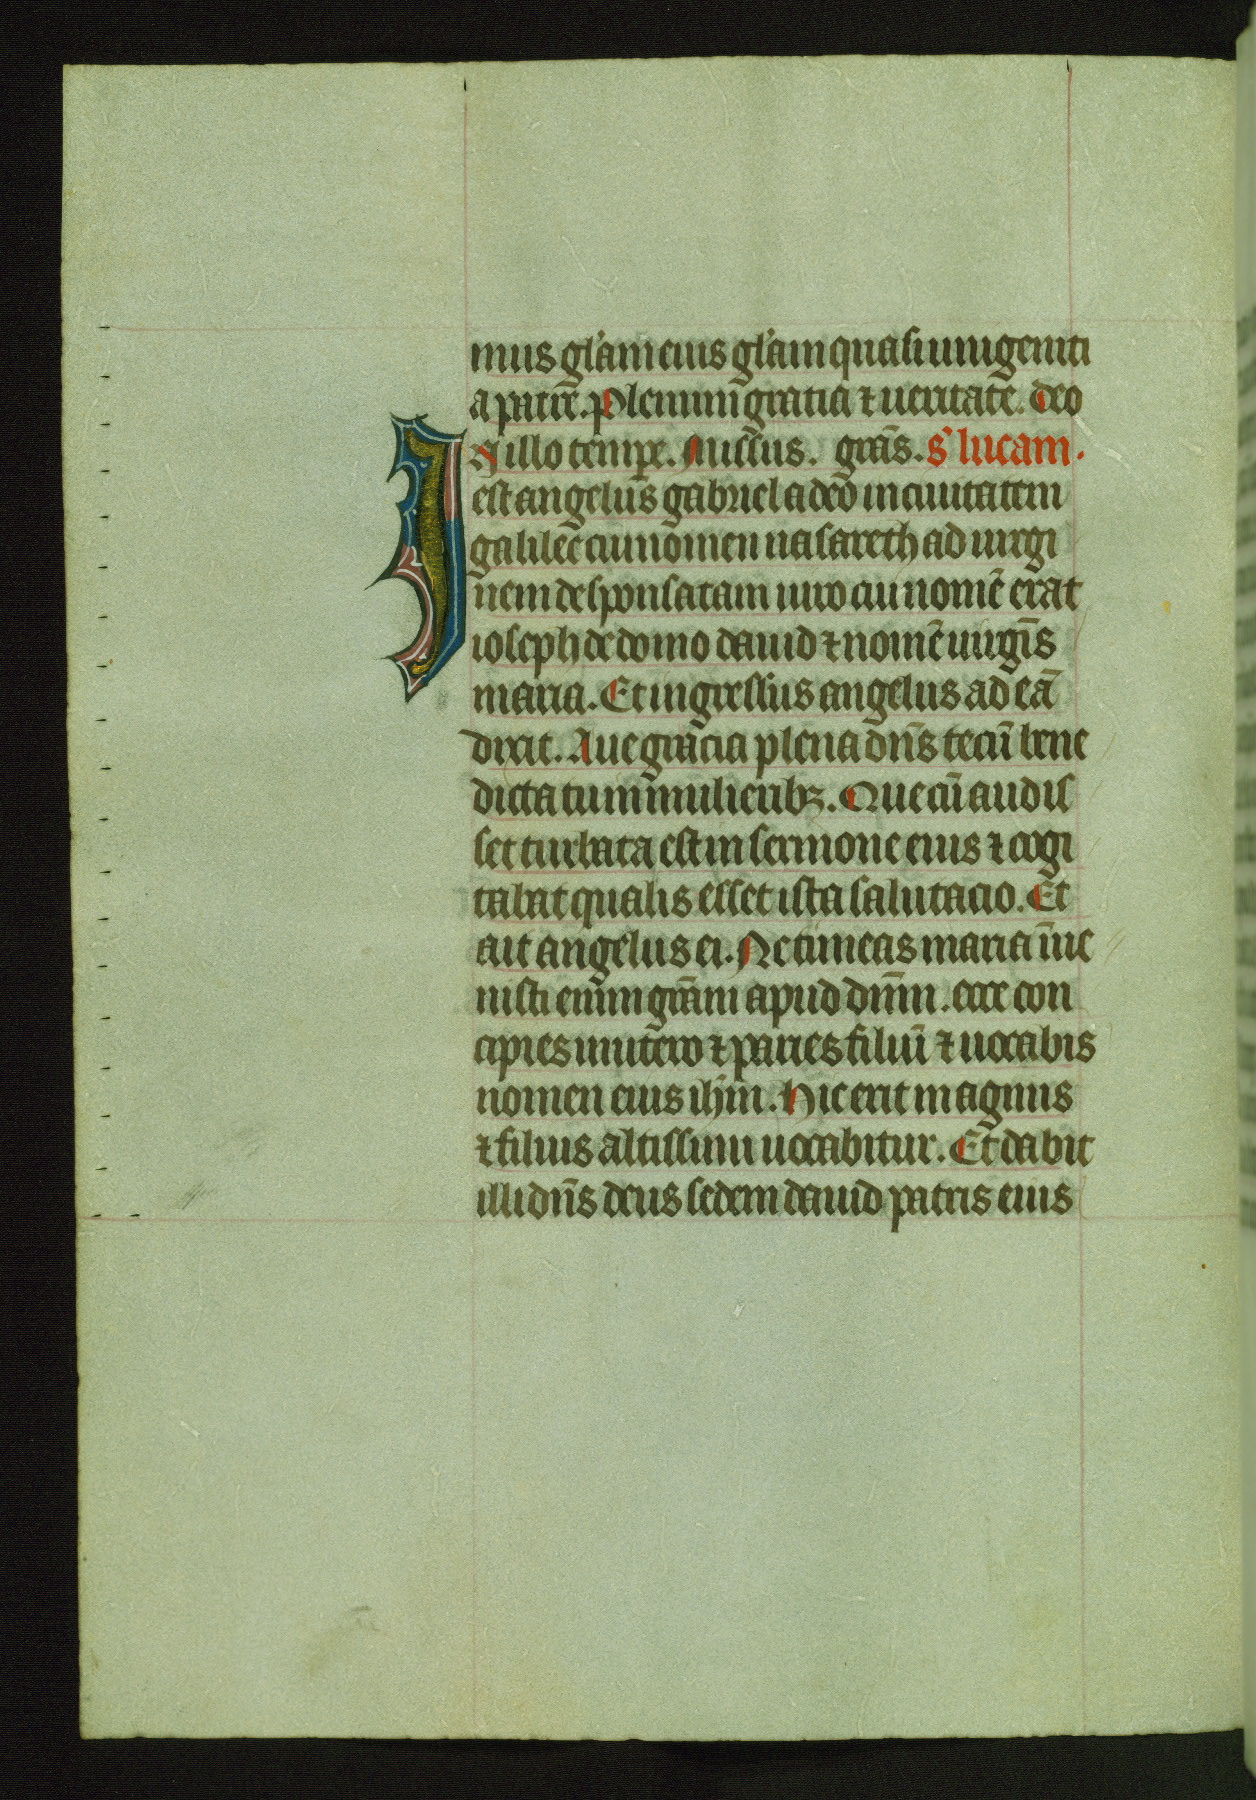 mus gl'am eius gl'am quasi unigeniti
a patre. Plenum gratia ⁊ ueritate. deo
IN illo tempore. Missus. gr̄as. s' lucam.
est angelus gabriel a deo in ciuitatem
galilee cui nomen nasareth ad uirgi
nem desponsatam uiro cui nomē erat
ioseph de domo dauid ⁊ nomē uirgīs
maria. Et ingressus angelus ad eā
dixit. Aue gracia plena dn̄s tecū bene
dicta tu in mulieribꝫ. Que cū audis
set turbata est in sermone eius ⁊ cogi
tabat qualis esset ista salutacio. Et
ait angelus ei. Ne timeas maria īue
nisti enim gr̄am apud dn̄m. ecce con
cipies in utero ⁊ paries filiū ⁊ uocabis
nomen eius ih̄m. Hic erit magnus
⁊ filius altissimi uocabitur. Et dabit
illi dn̄s deus sedem dauid patris eius